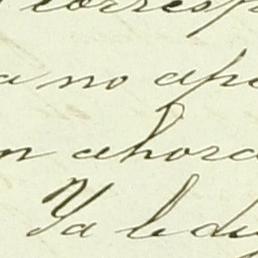 corresp
a no ape
n ahora
Ya le di